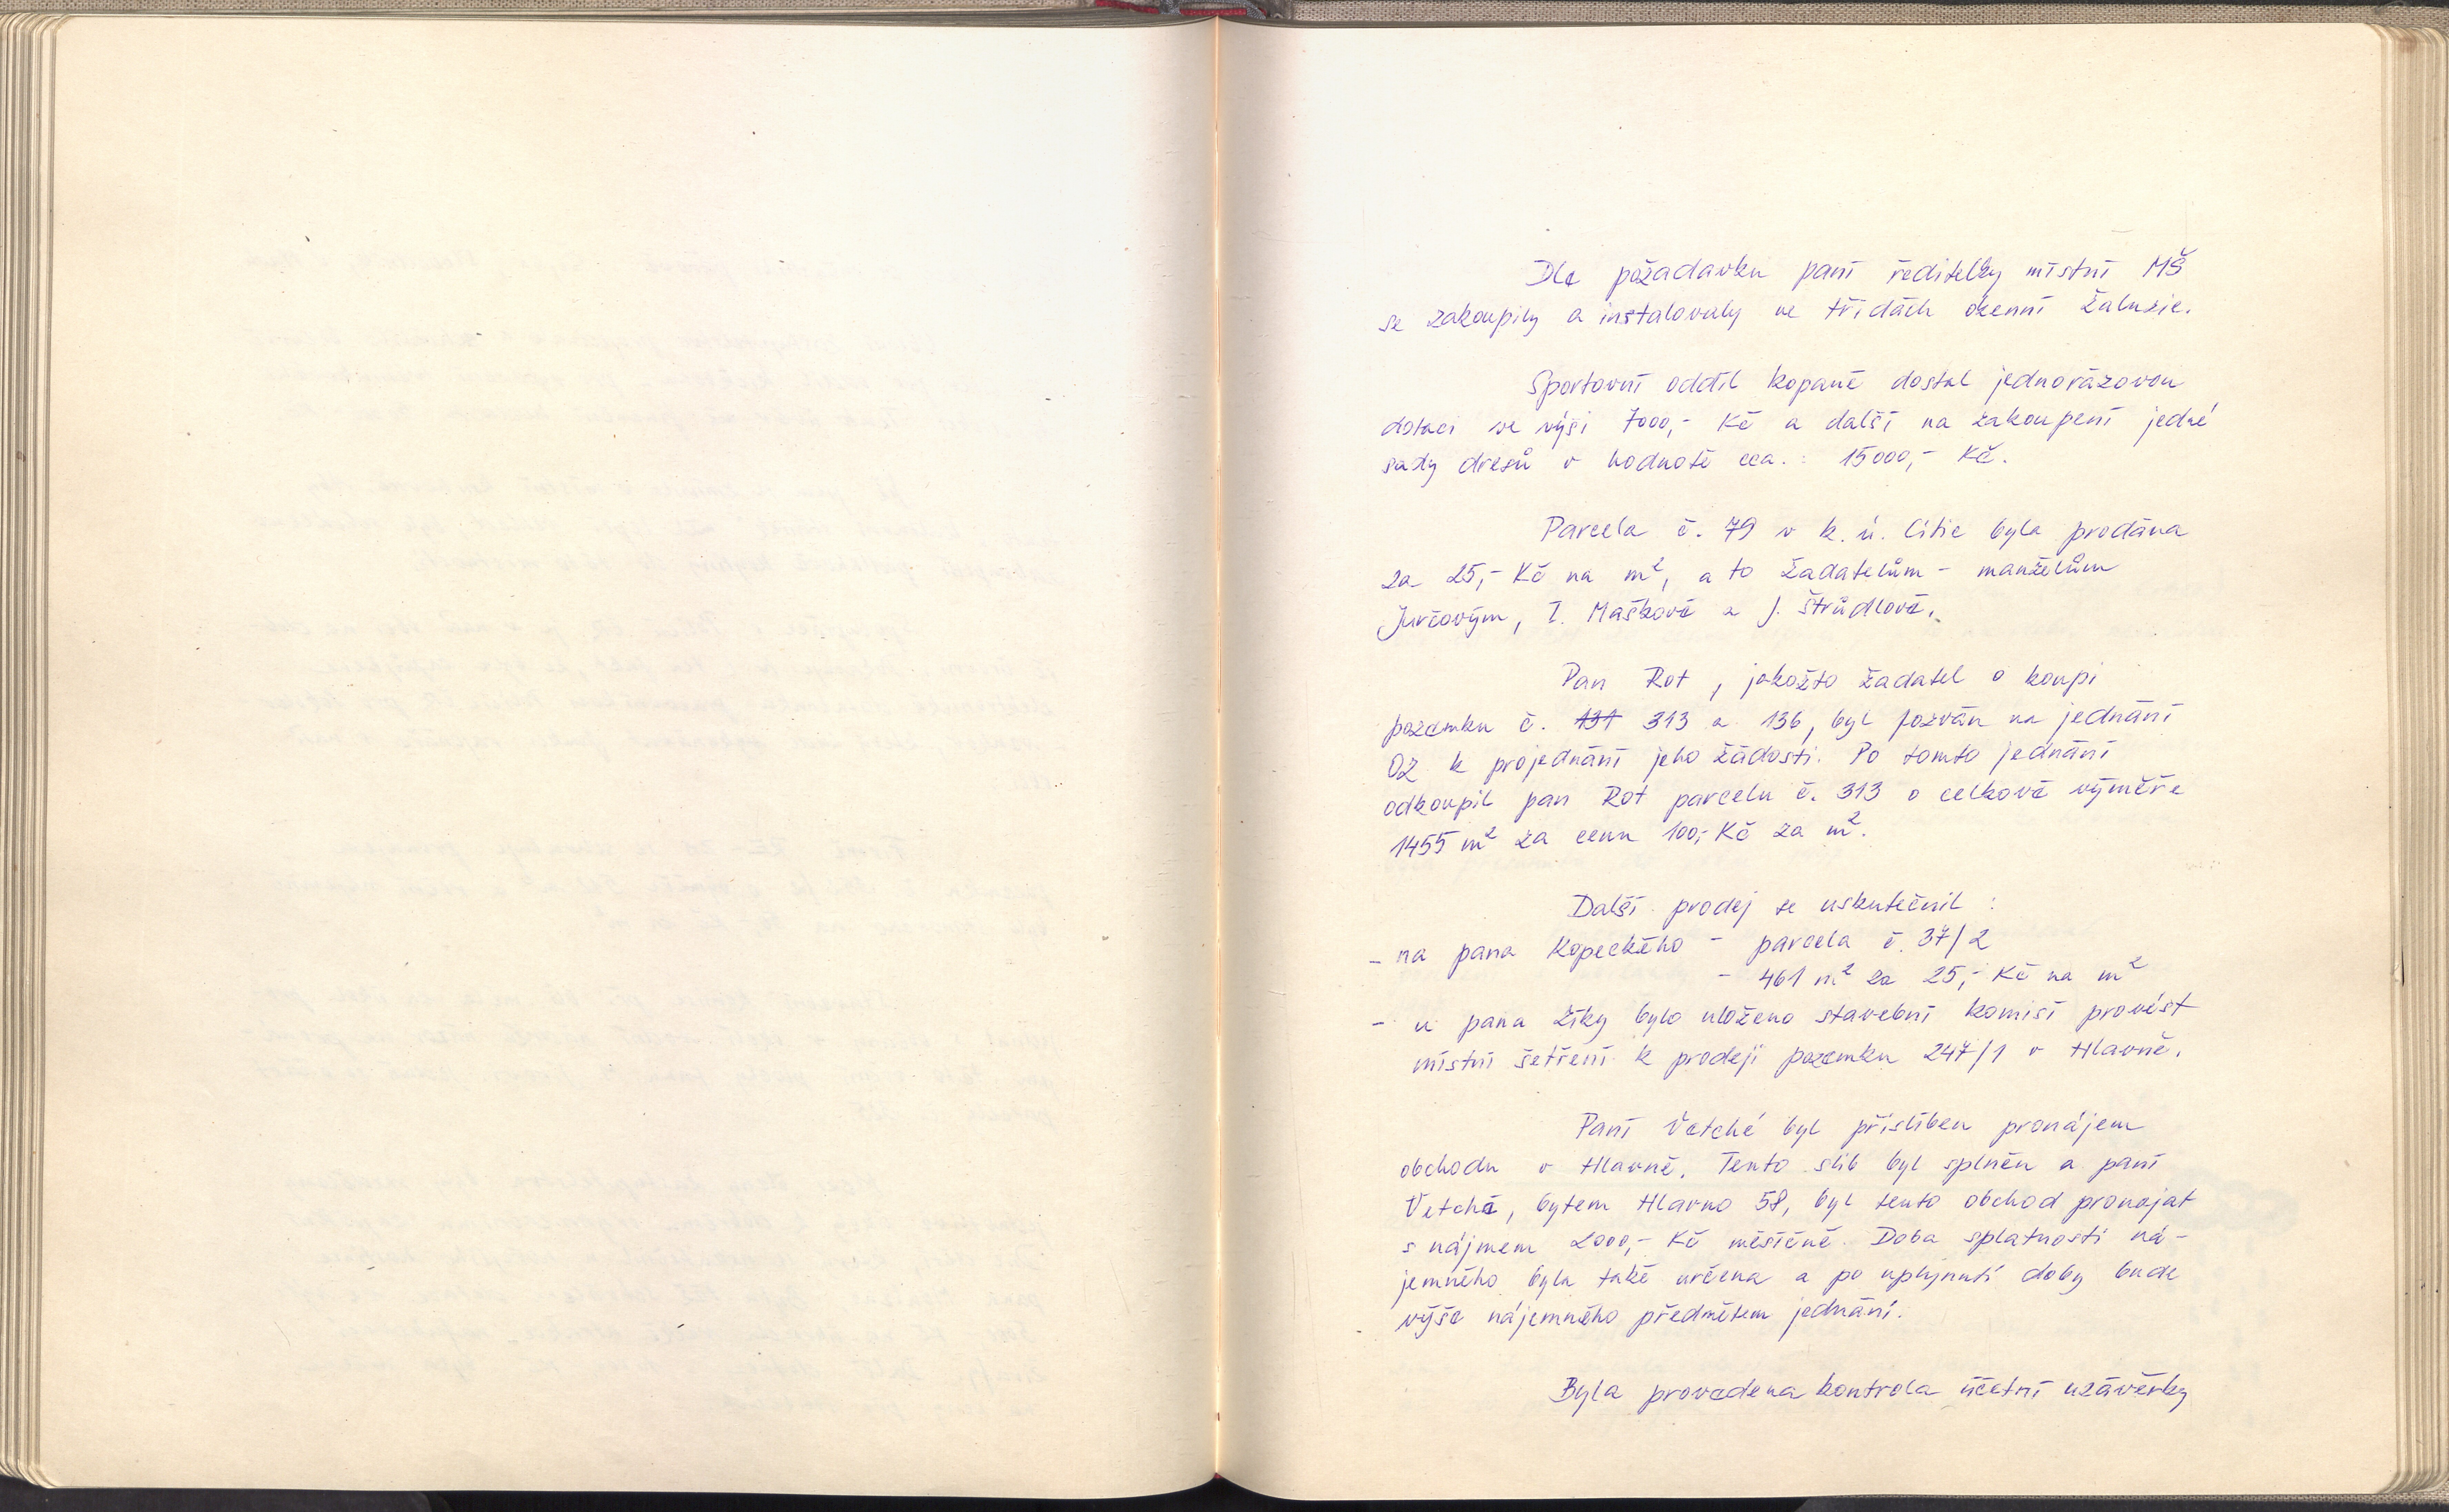 Dle požadavku paní ředitelky místní MŠ
se zakoupily a instalovaly ve třídách okenní žaluzie.
Sportovní oddíl kopané dostal jednorázovou
dotaci ve výši 7000,- Kč a další na zakoupení jedné
sady dresů v hodnotě cca. : 15000,- Kč.
Parcela č. 79 v k. ú. Litic byla prodána
za 25,- Kč na m², a to žadatelům - manželům
Jurčovým, I. Maškové a J. Štrůdlové.
Pan Rot, jakožto žadatel o koupi
pozemku č. 131 313 a 136, byl pozván na jednání
OZ k projednání jeho žádosti. Po tomto jednání
odkoupil pan Rot parcelu č. 313 o celkové výměře
1455 m² za cenu 100,- Kč za m².
Další prodej se uskutečnil :
- na pana Kopeckého - parcela č. 37/2
- 461 m² za 25,- Kč na m²
- u pana Zíky bylo uloženo stavební komisi provést
místní šetření k prodeji pozemku 247/1 v Hlavně.
Paní Vetché byl přislíben pronájem
obchodu v Hlavně. Tento slib byl splněn a paní
Vetché, bytem Hlavno 58, byl tento obchod pronajat
s nájmem 2000,- Kč měsíčně. Doba splatnosti ná-
jemného byla také určena a po uplynutí doby bude
výše nájemného předmětem jednání.
Byla provedena kontrola účetní uzávěrky